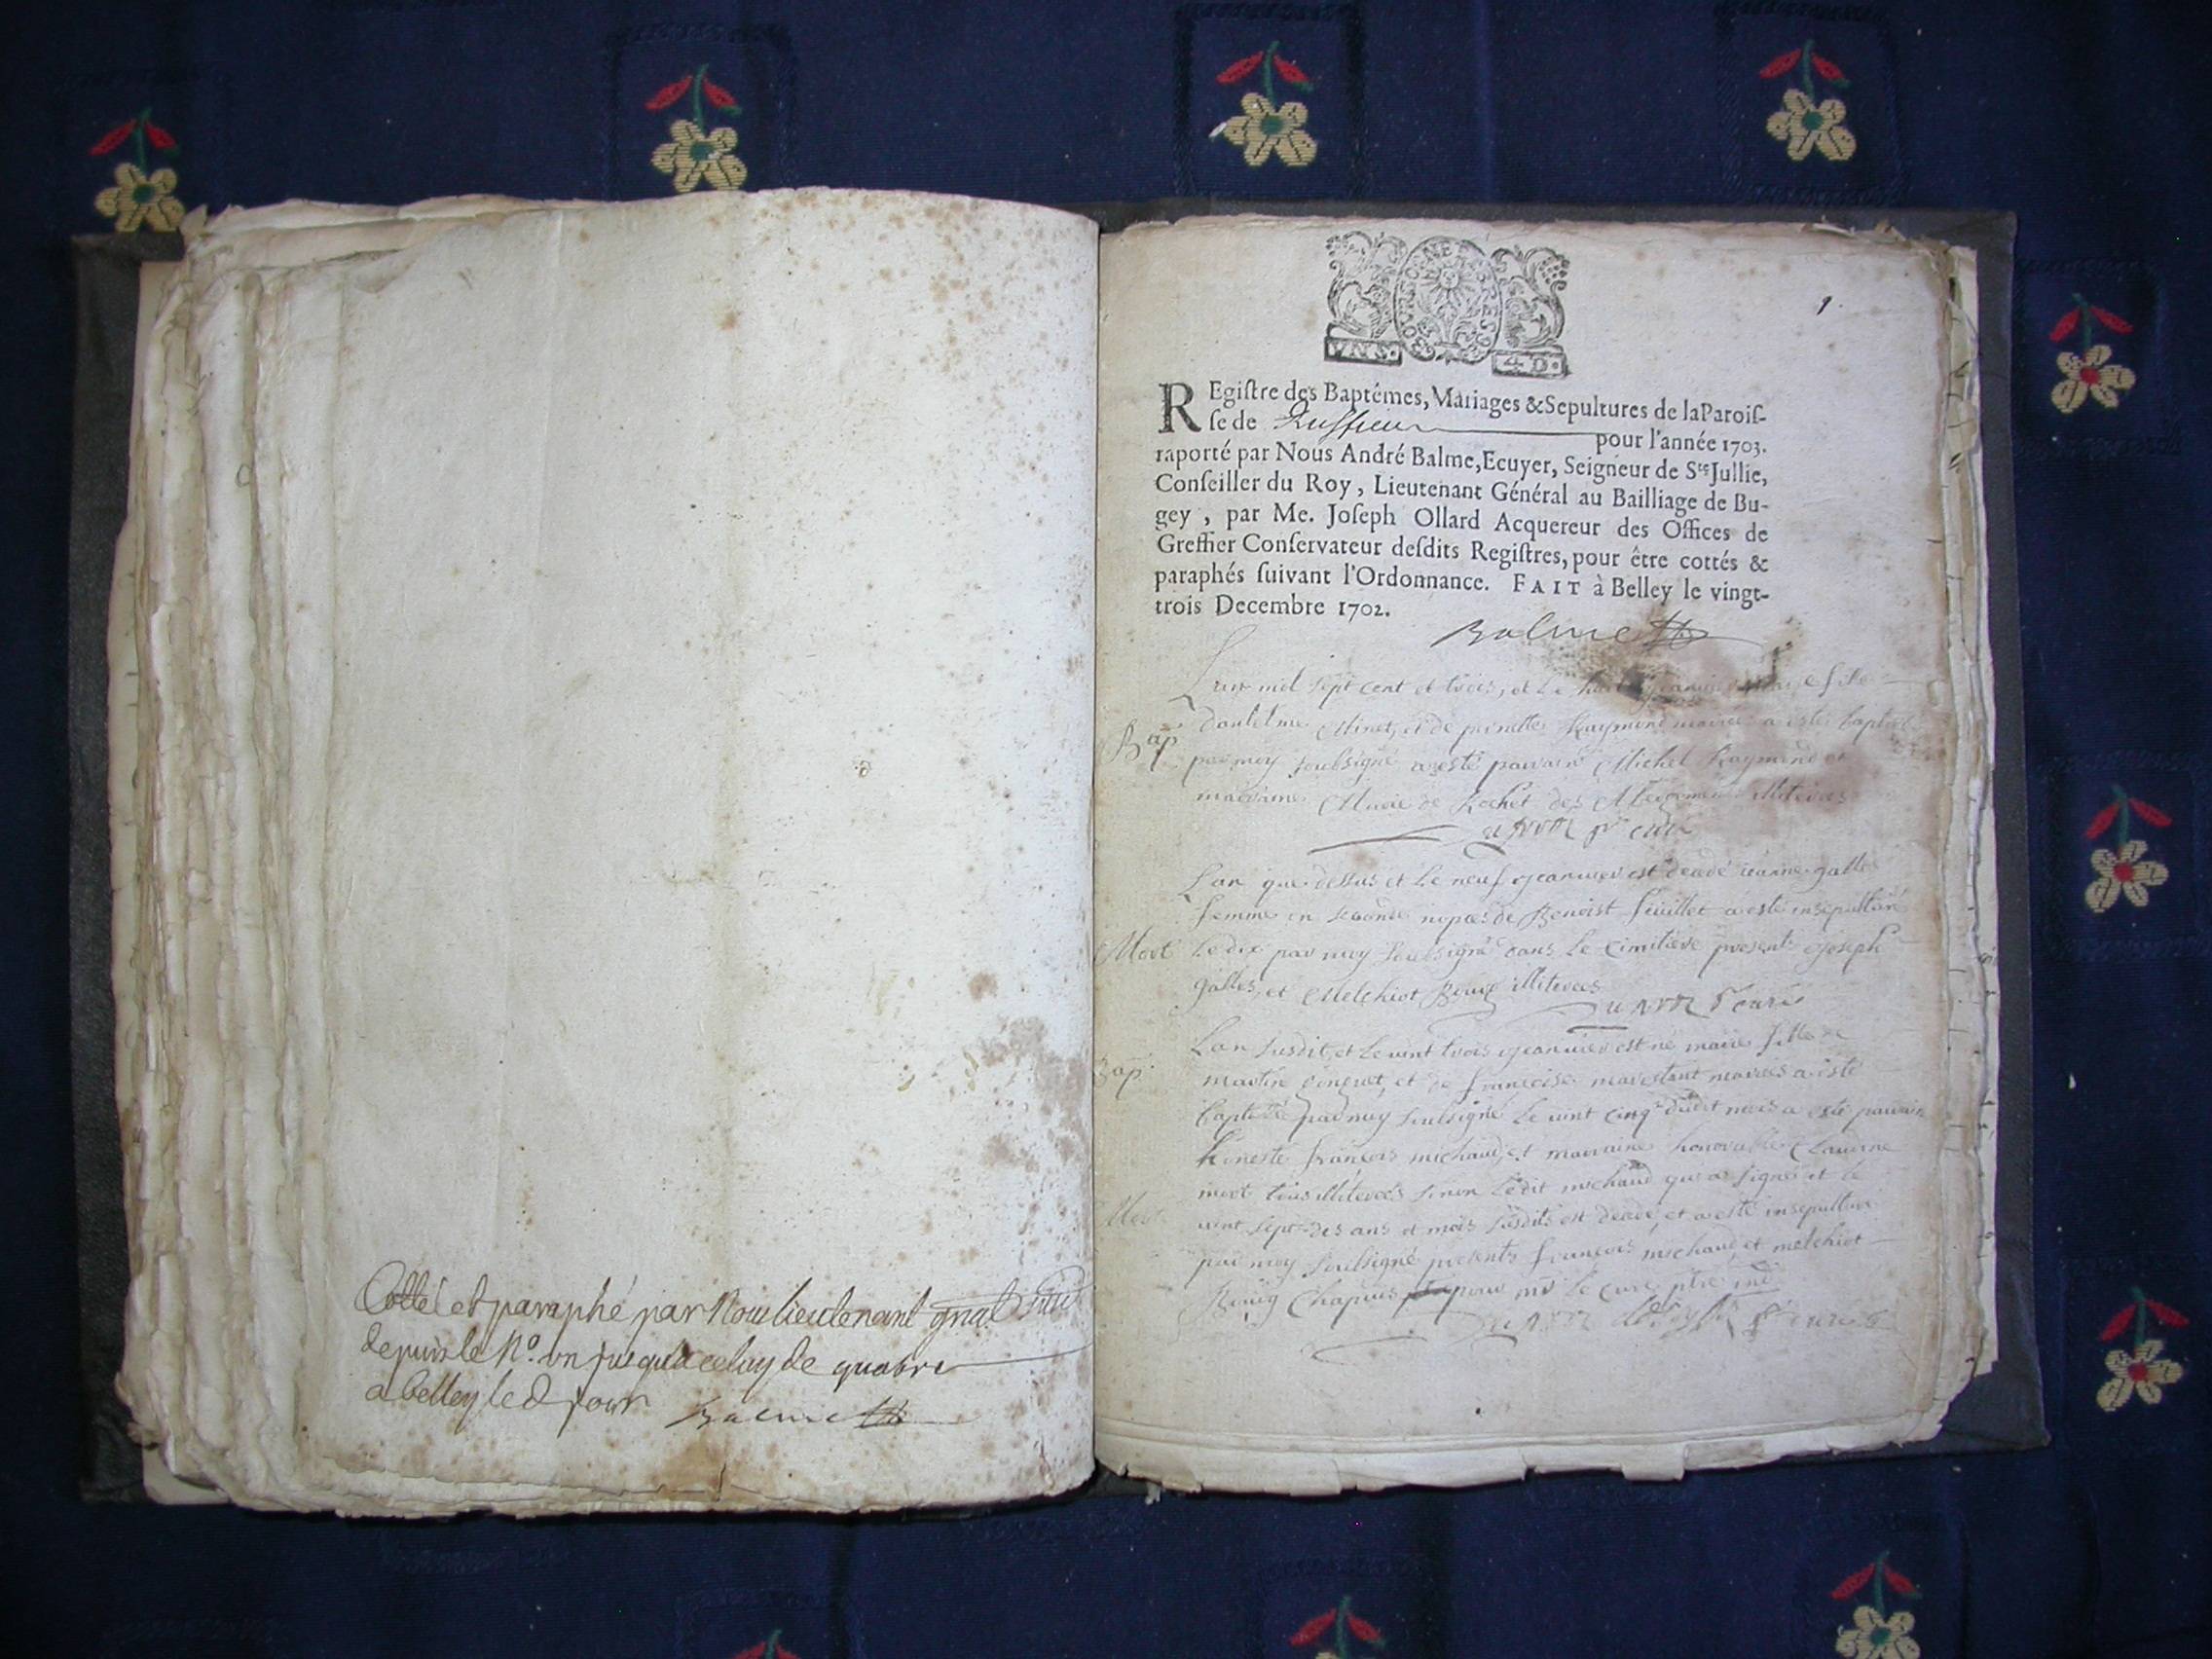 Cotté et paraphé par Nous Lieutenant gnal
depuis le N°. un jusqu'a celuy de quatre
a belley led jour
Balme
1.
VNS. 4 D.
REgiſtre des Baptémes, Mariages & Sepultures de la Paroiſ-
ſe de Ruffieu pour l'année 1703.
raporté par Nous André Balme, Ecuyer, Seigneur de Ste Jullie,
Conſeiller du Roy, Lieutenant Général au Bailliage de Bu-
gey, par Me. Joſeph Ollard Acquereur des Offices de
Greffier Conſervateur deſdits Regiſtres, pour être cottés &
paraphés ſuivant l'Ordonnance. FAIT à Belley le vingt-
trois Decembre 1702.
Balme
L'an mil sept cent et trois, et le huit
Bap danthelme Minet, et de pernette Raymond mariés a esté baptisé
par moy soubsigné a esté parrain Michel Raymond et
marraine Marie de Rochet des illiteres
curé
L'an que dessus et le neuf Jeanvier est decedé jeanne galle
femme en seconde nopces de Benoist feüillet a esté insepulturé
Mort le dix par moy soubsigné dans le cimitiere presents Joseph
galles, et Melchiot Bouig illiterees
curé
L'an susdit, et le vint trois Jeanvier est né marie fille de
Bap. martin et de françoise mariés a esté
baptisé par moy soubsigné le vint cinq dudit mois a esté parrain
honeste françois michaud, et marraine honorable Claudine
mort tous illiterees sinon ledit michaud qui a signé et le
Mort vint sept des ans et mois susdits est decedé, et a esté insepulturé
par moy soubsigné presents françois michaud et melchiot
Bouig Chapuis pour mr le curé
curé